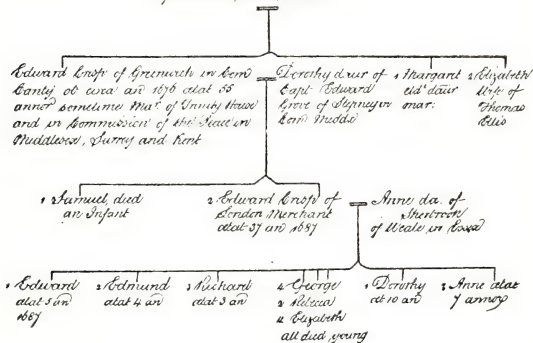 Edward Crisp of Greenwich in Com
Cantij ob circa an 1676 ætat 55
annor sometime Mar. of Trinity House
and in Commission of the Peace in
Middlesex, Surrey and Kent
Dorothy daur of
Capt. Edward
Grove of Stepney in
Com Middx
1 Margaret
eld. daur
mar:
2 Elizabeth
Wife of
Thomas
Ellis
1 Samuel, died
an Infant
2 Edward Crisp of
London Merchant
ætat 37 an 1687
Anne da. of
Sherbroon
of Weale in Essex
1 Edward
ætat 5 an
1687
2 Edmund
ætat 4 an
3 Richard
ætat 3 an
4 George
2 Rebecca
4 Elizabeth
all died young
1 Dorothy
æt 10 an
3 Anne ætat
7 annor